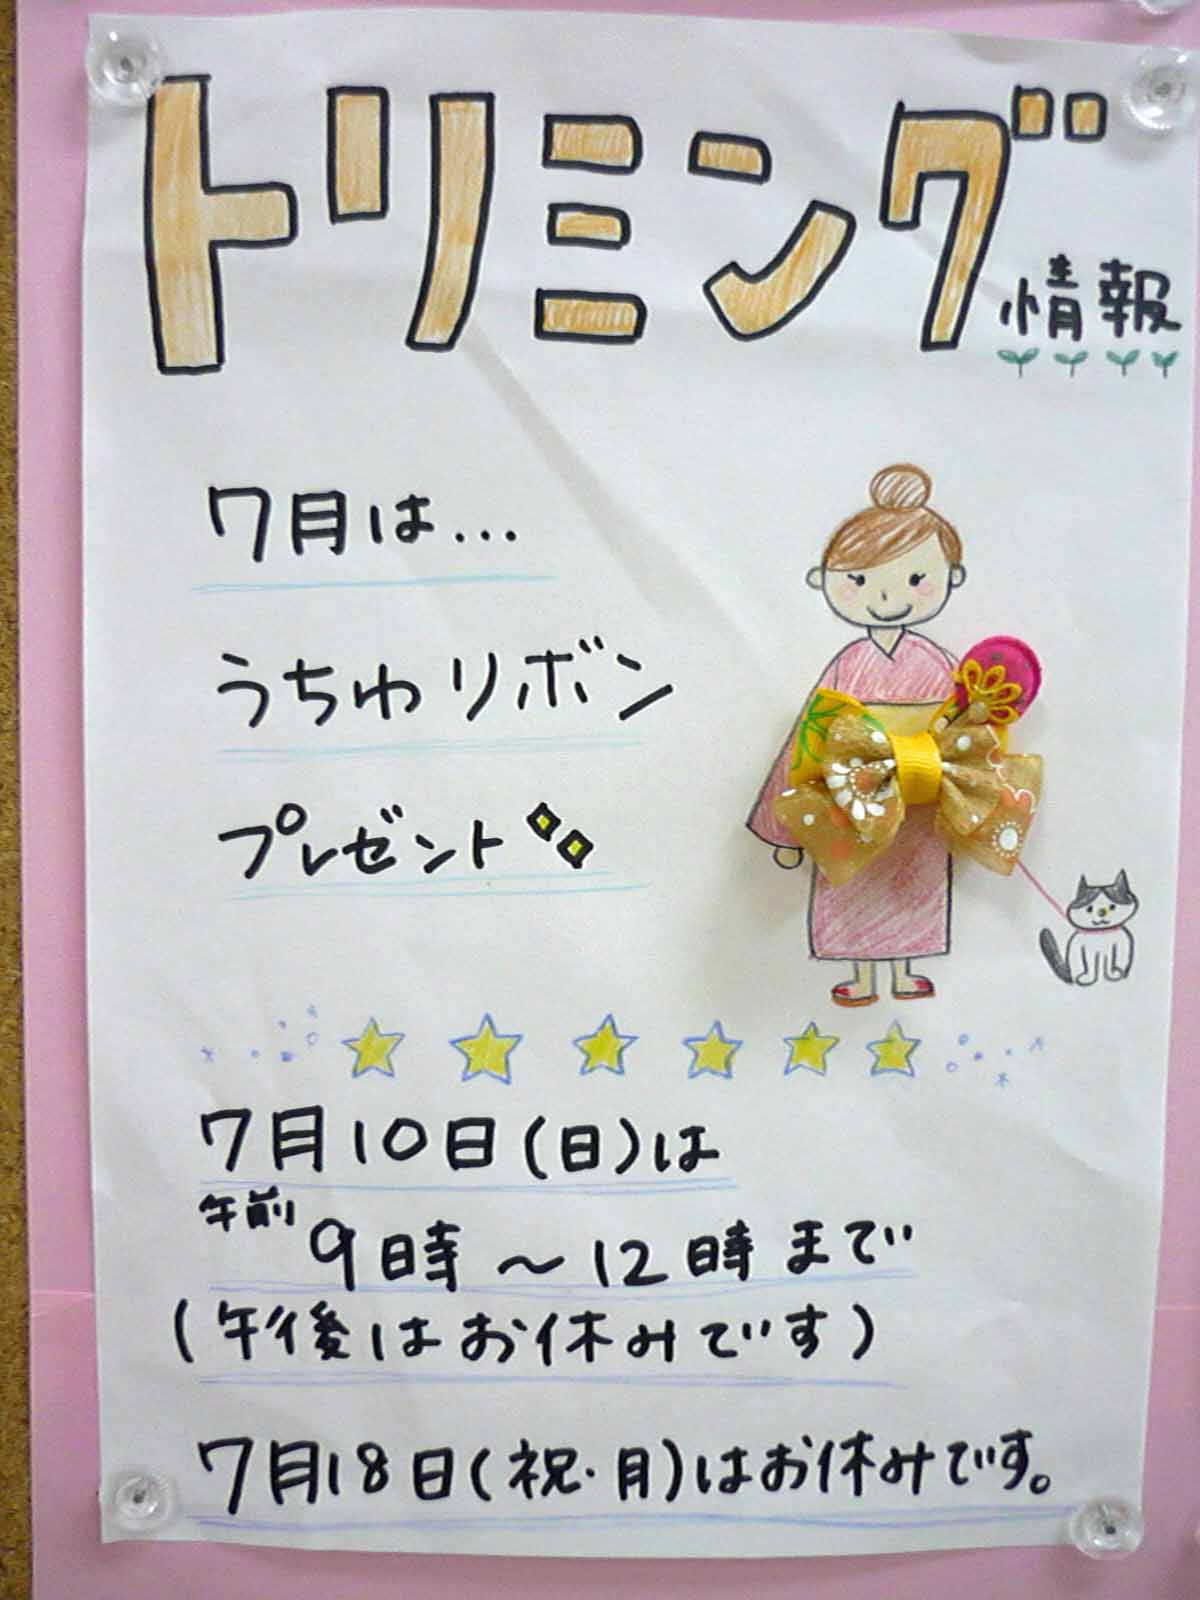 トリミング情報
7月は...
うちわリボン
プレゼント
7月10日(日)は
午前9時～12時まで
(午後はお休みです)
7月18日(祝・月)はお休みです。